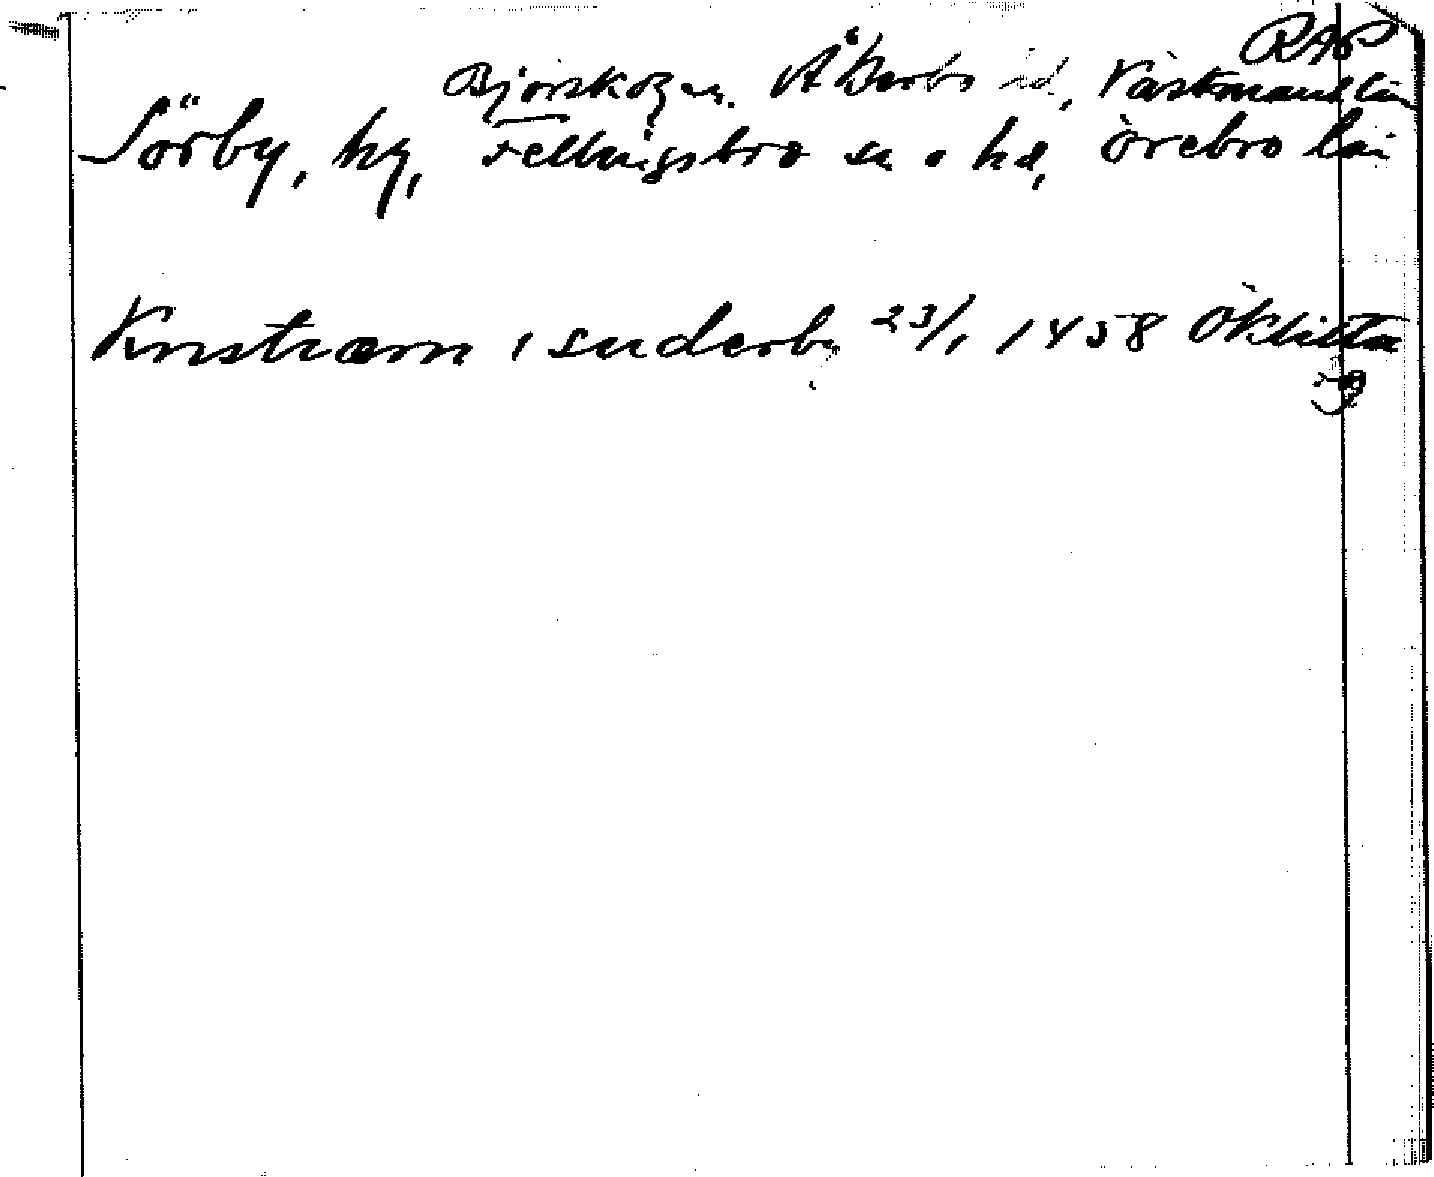 RAP
Björskog sn. Åkerbo hd, Västmanl län
Sörby, by, Fellingsbro sn o hd, Örebro län
Cristiærn i suderby 23/1 1458 Öklista